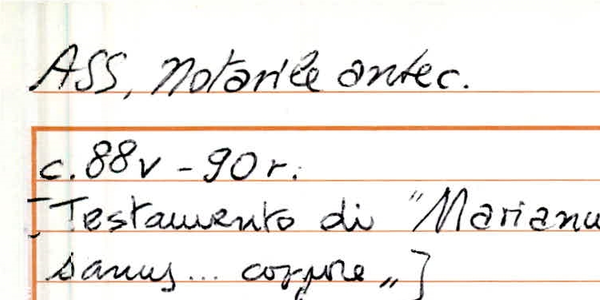 ASS, Notarile antec.
c. 88v - 90r.
[Testamento di "Marianu
sanus... corpore„]